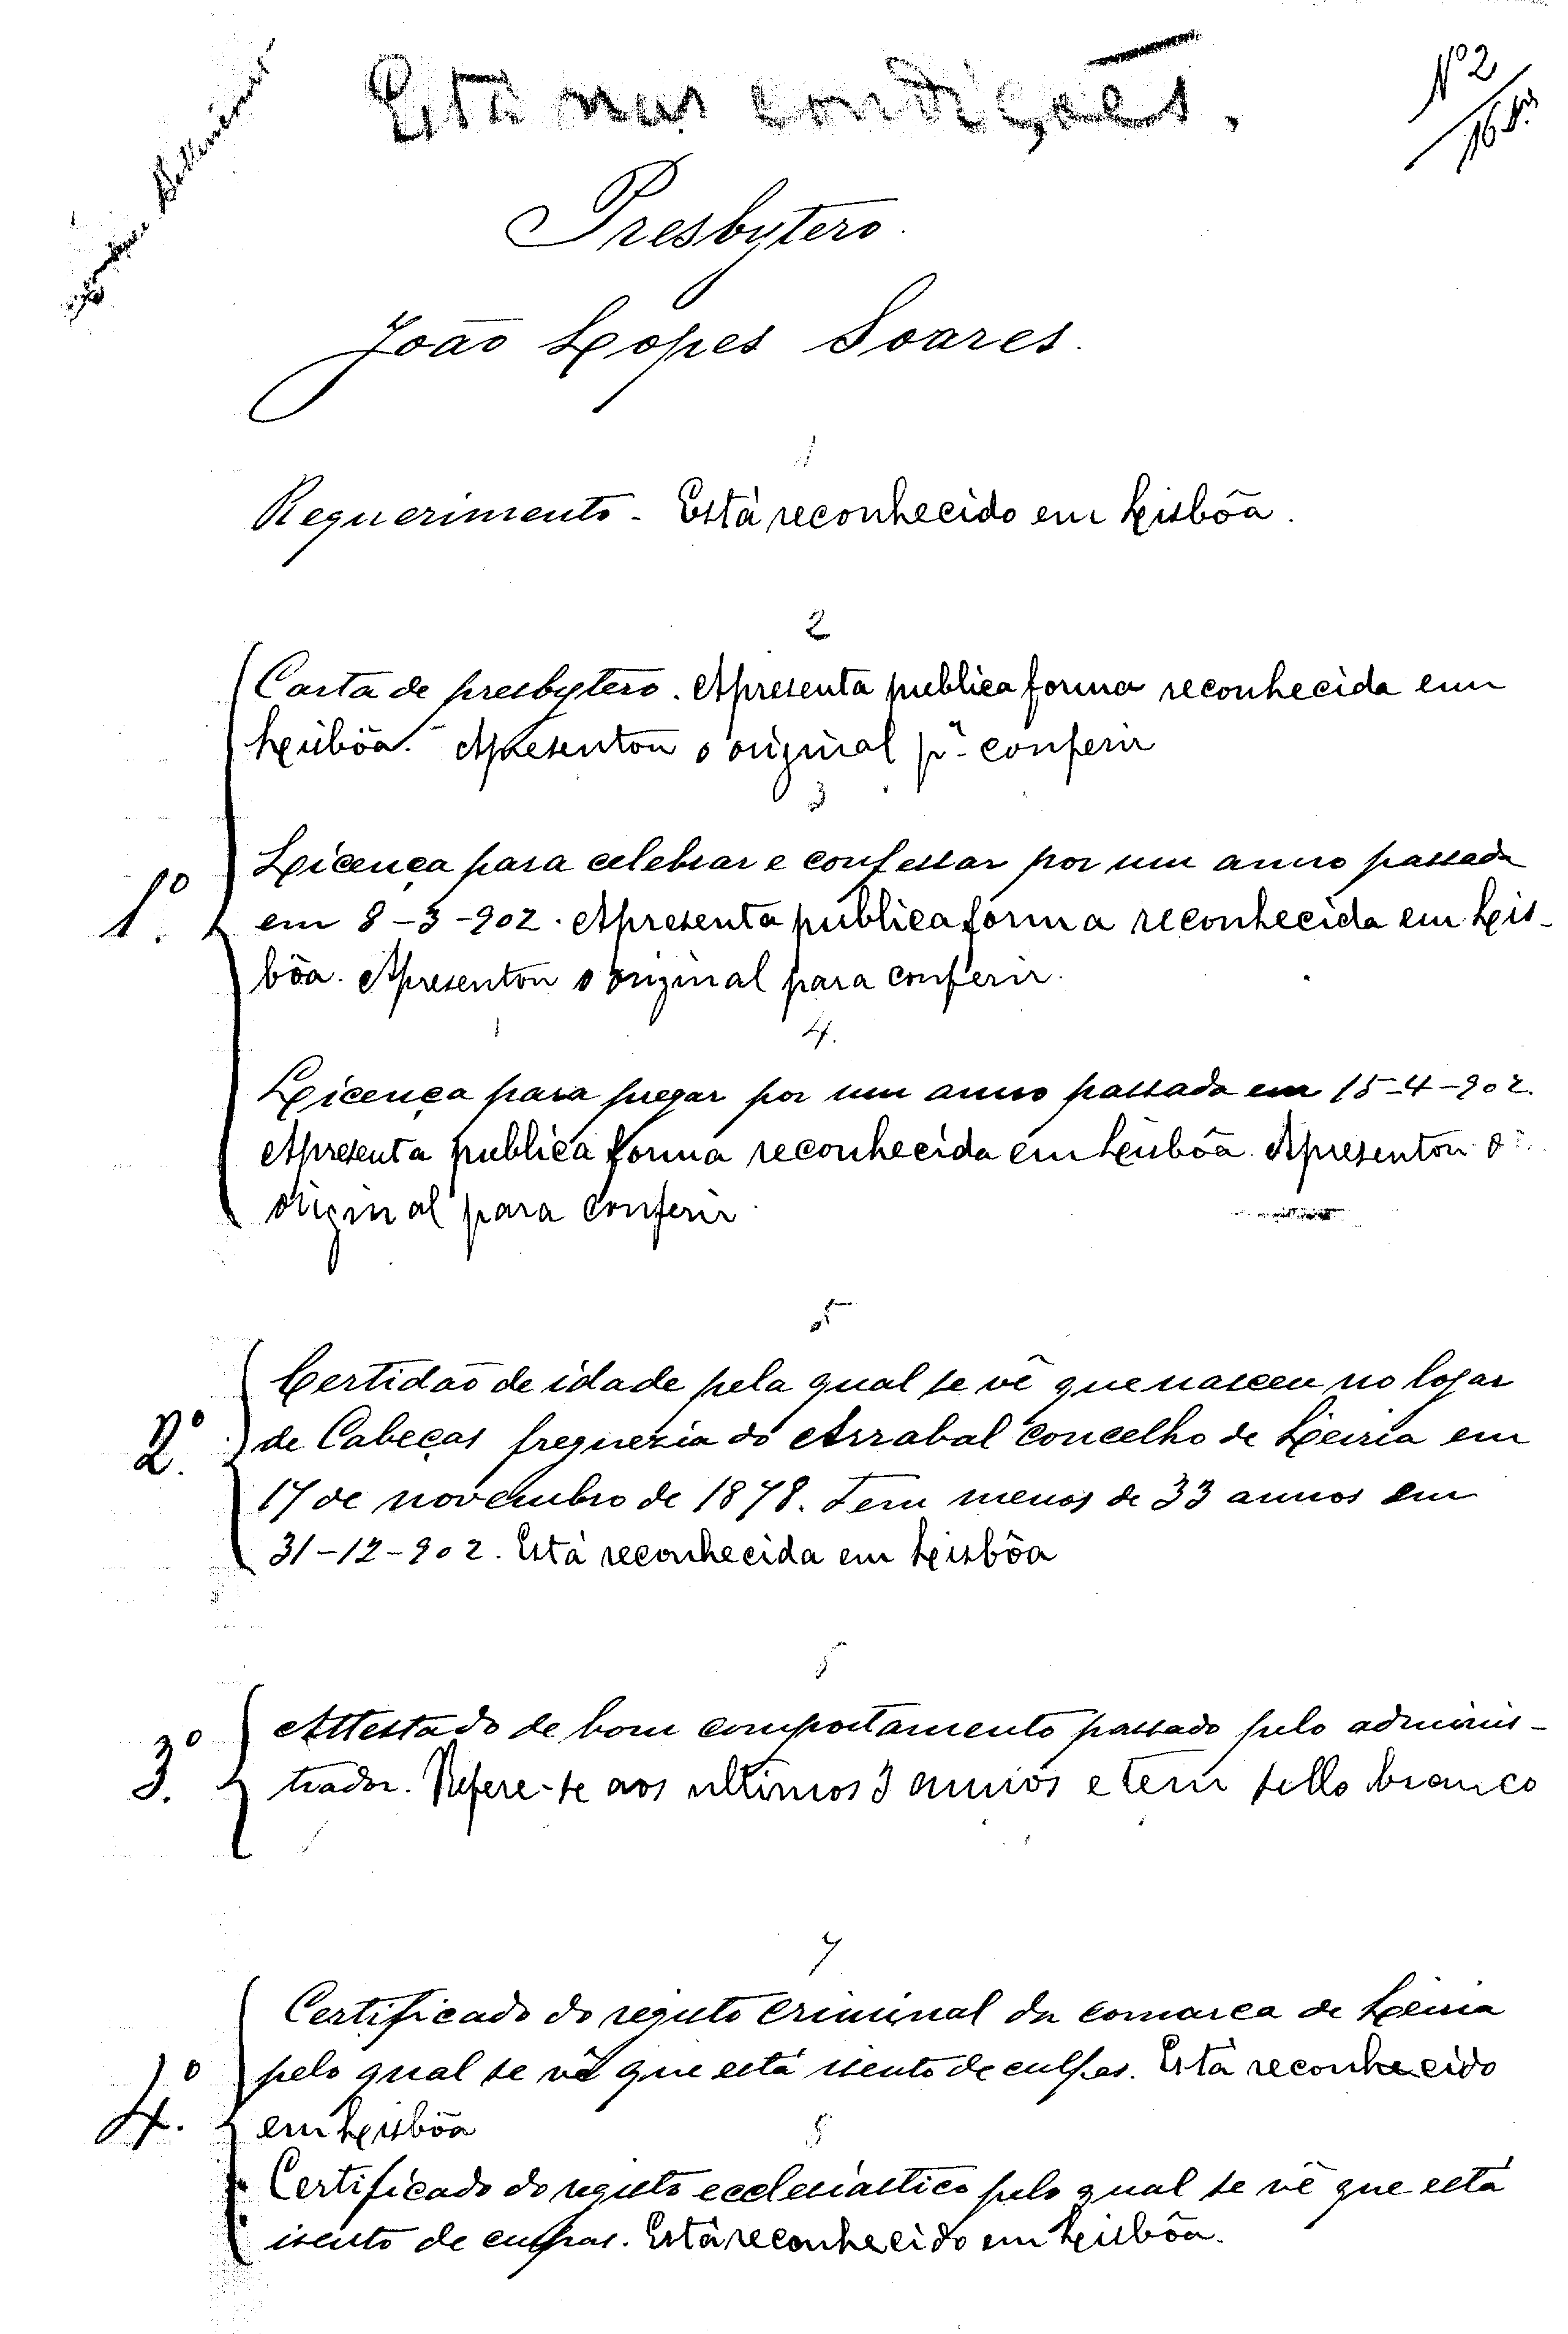 Está nas condições.
Nº 2
Presbytero
João Lopes Soares.
1
Requerimento - Está reconhecido em Lisbôa.
2
Carta de presbytero. Apresenta publica forma reconhecida em
Lisbôa. Apresentou o original pª conferir
3
Licença para celebrar e confessar por um anno passada
em 8-3-902. Apresenta publica forma reconhecida em Lis-
bôa. Apresentou o original para conferir.
1º
4.
Licença para pregar por um anno passada em 15-4-902.
Apresenta publica forma reconhecida em Lisbôa. Apresentou o
original para conferir.
5
Certidão de idade pela qual se vê que nasceu no logar
de Cabeças freguezia do Arrabal concelho de Leiria em
2º
17 de novembro de 1878. Tem menos de 33 annos em
31-12-902. Está reconhecida em Lisbôa
Attestado de bom comportamento passado pelo adminis-
3º
trador. Refere-se aos ultimos 3 annos e tem sello branco
7
Certificado do registo criminal da comarca de Leiria
pelo qual se vê que está isento de culpas. Está reconhecido
4º
em Lisbôa
8
Certificado do registo ecclesiastico pelo qual se vê que está
isento de culpas. Está reconhecido em Lisbôa.